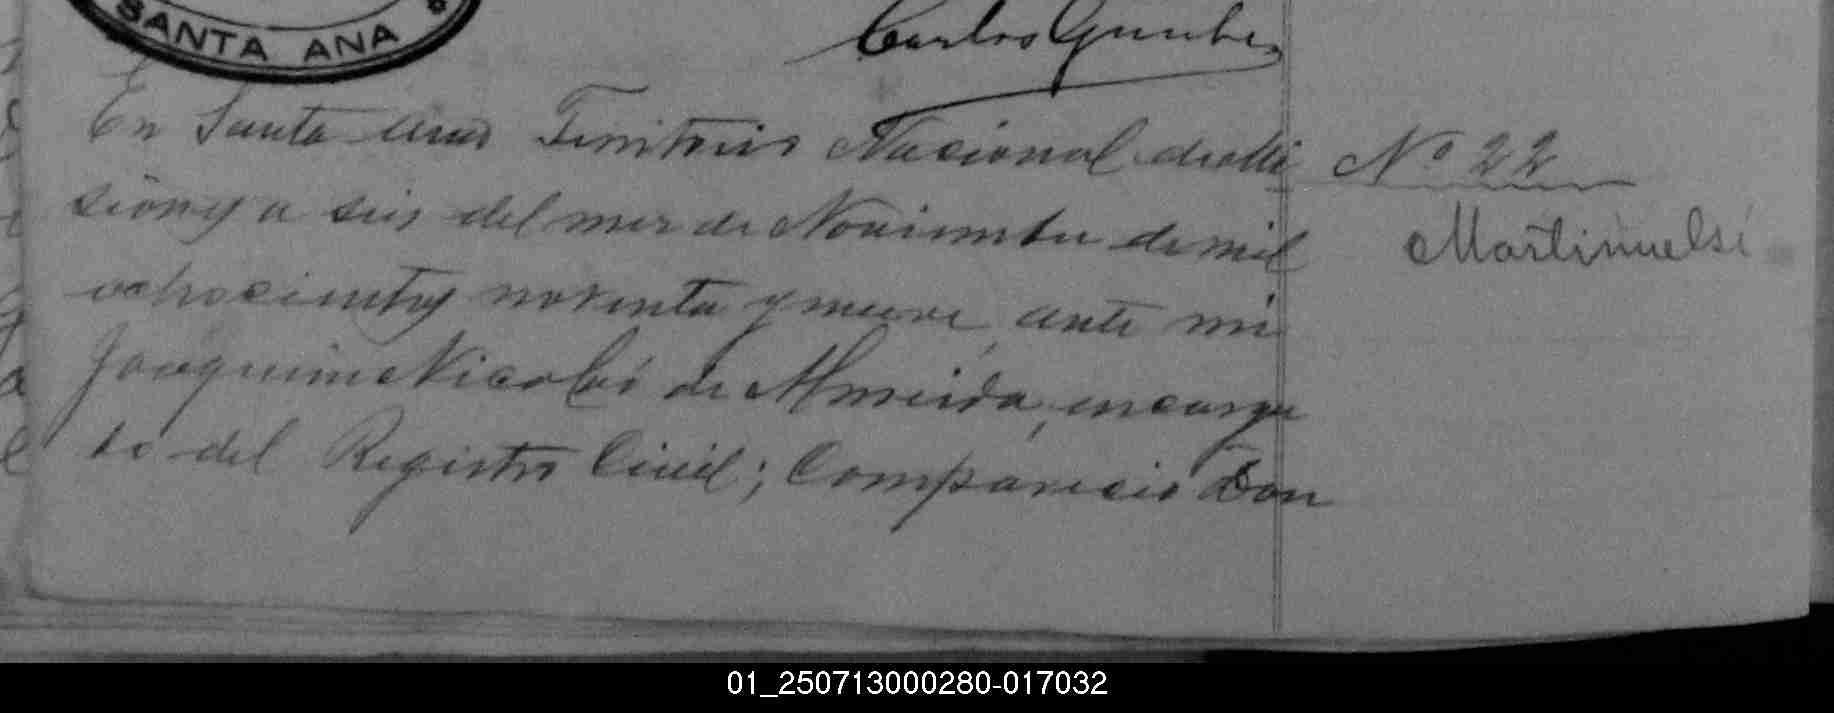 SANTA ANA
Carlos
En Santa Ana Territorio Nacional de Mi
siones a seis del mes de Noviembre de mil
ochocientos noventa y nueve, ante mi
Joaquim Nicolai de Almeida, encarga
do del Registro Civil; Comparecio Don
Nº 22
Martinuelsi
01_250713000280-017032